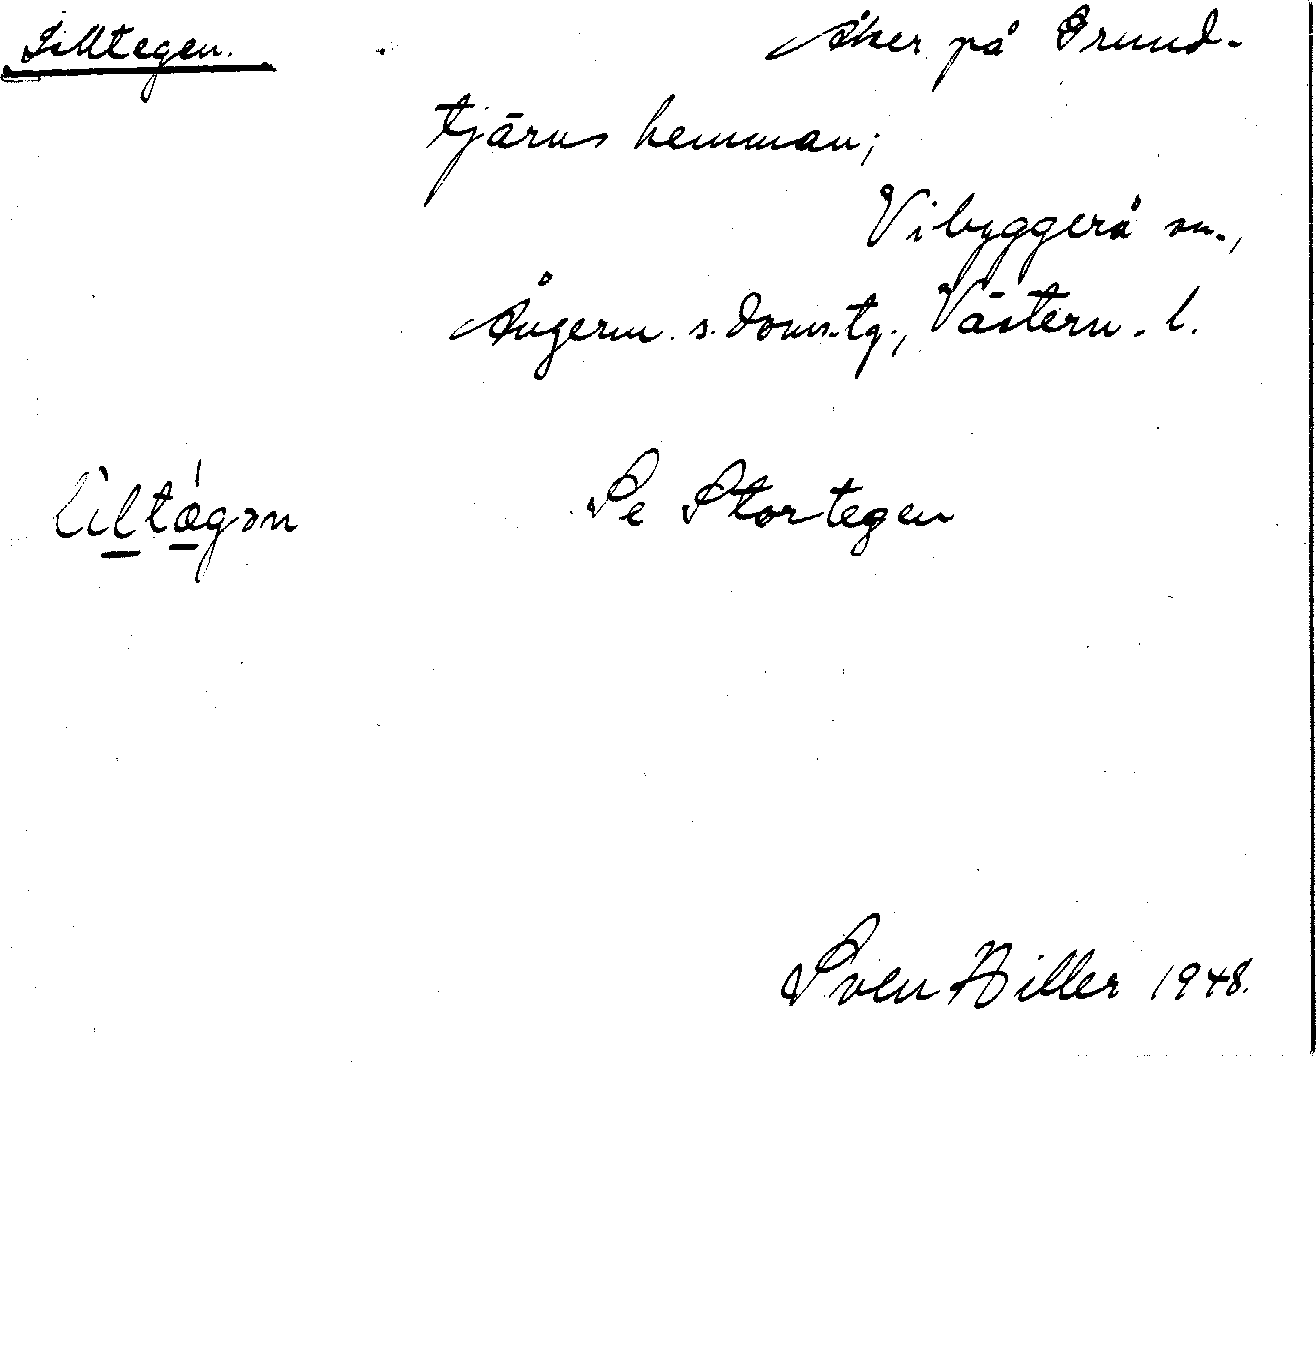 Lilltegen. Åker på Grund-
tjärns hemman;
Vibyggerå sn.,
Ångerm. s. doms.tg., Västern. l.
Se Stortegen
Sven Hiller 1948.